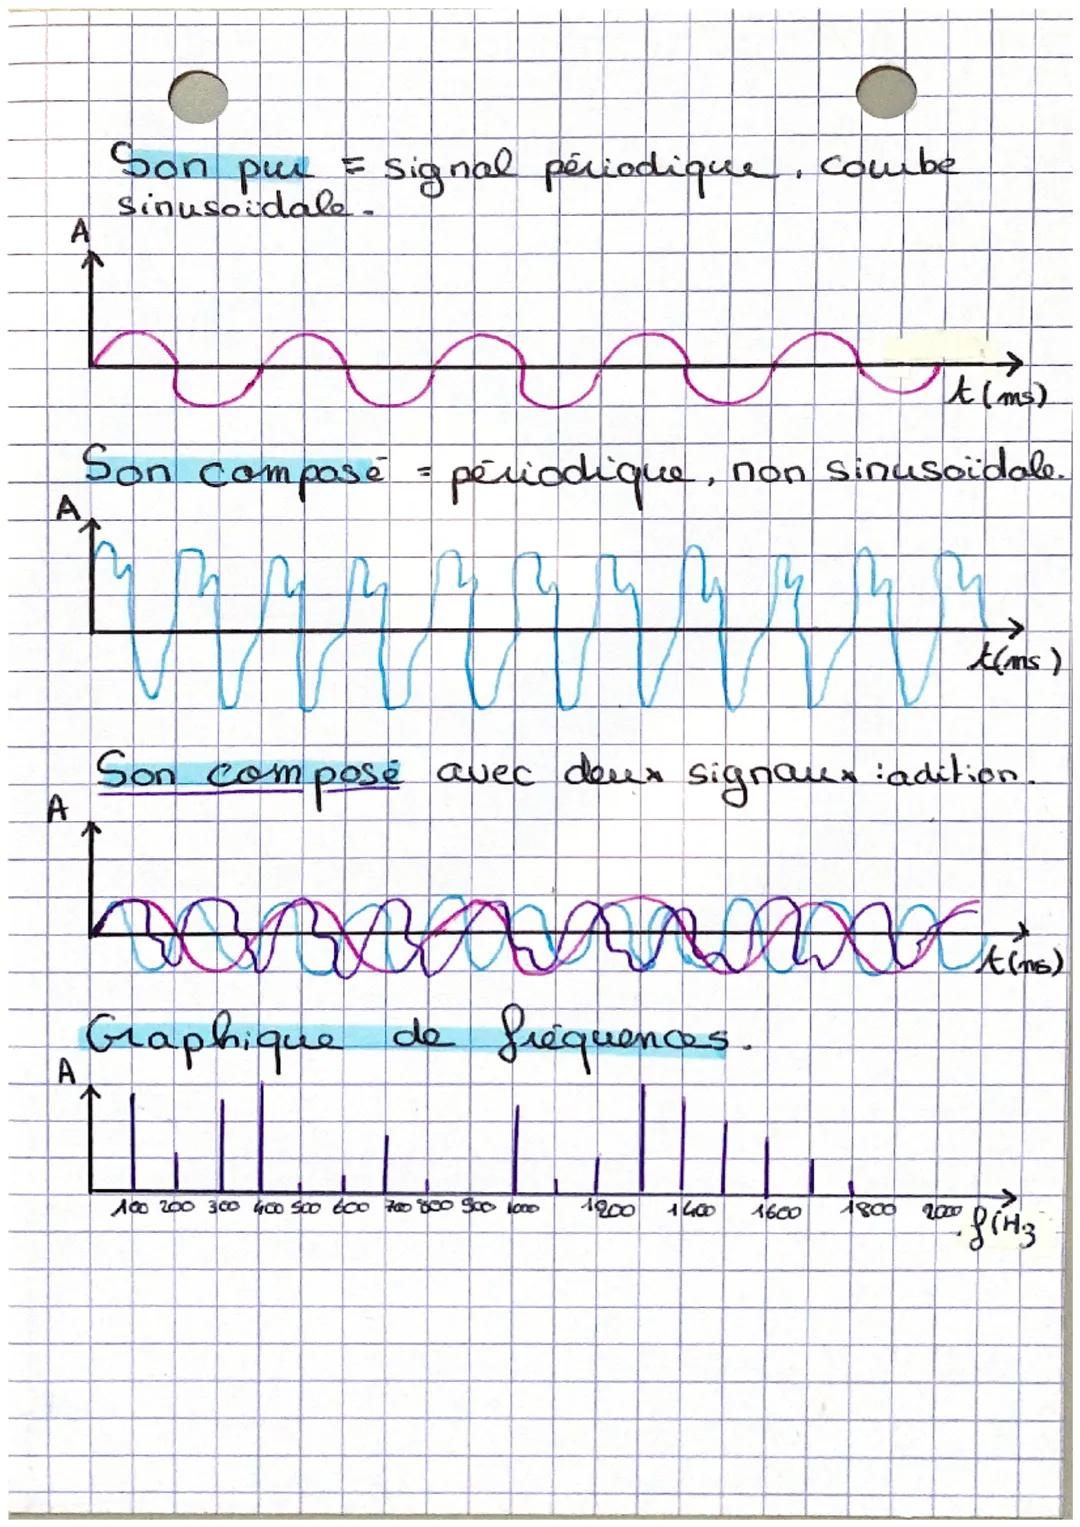 Son pur = signal périodique, courbe
sinusoïdale.
A
t(ms)
Son composé = périodique, non sinusoïdale.
A
t(ms)
Son composé avec deux signaux : adition.
A
t(ms)
Graphique de fréquences.
A
100 200 300 400 500 600 700 800 900 1000 1200 1400 1600 1800 2000
f(Hz